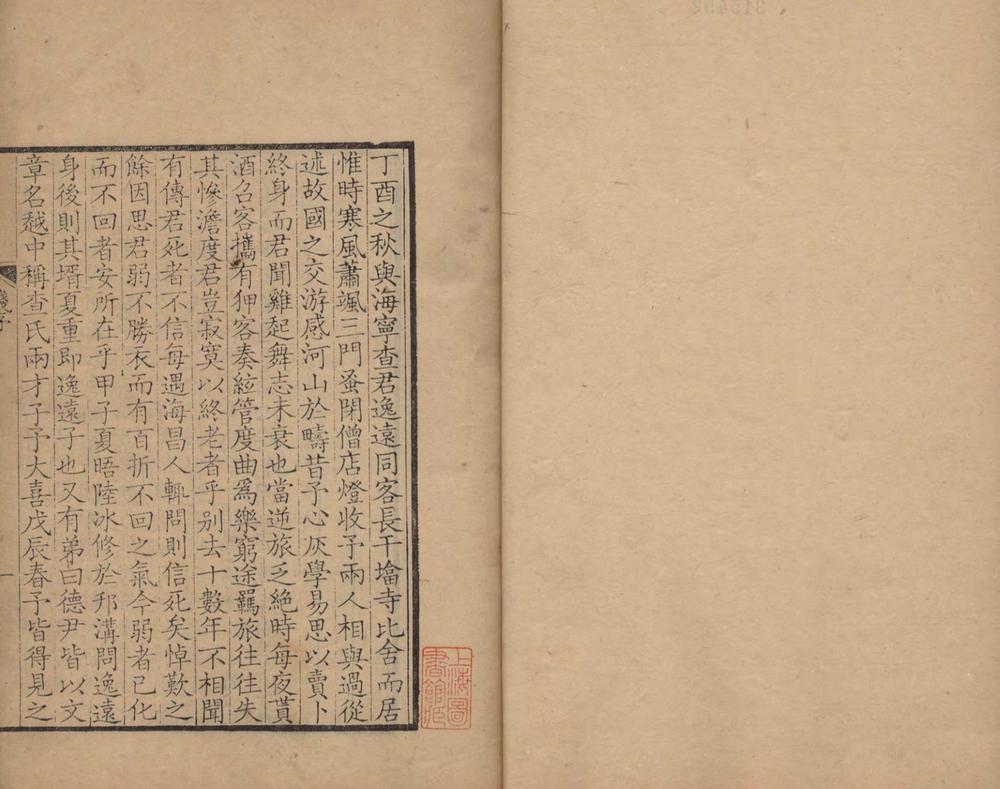 丁酉之秋與海寧查君逸遠同客長干塔寺比舍而居
惟時寒風蕭颯三門蚤閉僧店燈收予兩人相與過從
述故國之交游感河山於疇昔予心灰學易思以賣卜
終身而君聞雞起舞志未衰也當逆旅乏絕時每夜貰
酒召客攜有狎客奏絃管度曲爲樂窮途羈旅往往失
其慘澹度君豈寂寞以終老者乎别去十數年不相聞
有傳君死者不信每遇海昌人輒問則信死矣悼歎之
餘因思君弱不勝衣而有百折不回之氣今弱者已化
而不回者安所在乎甲子夏晤陸冰修於邗溝問逸遠
身後則其壻夏重即逸遠子也又有弟曰德尹皆以文
章名越中稱查氏兩才子予大喜戊辰春予皆得見之
序
一
上海圖
書館藏